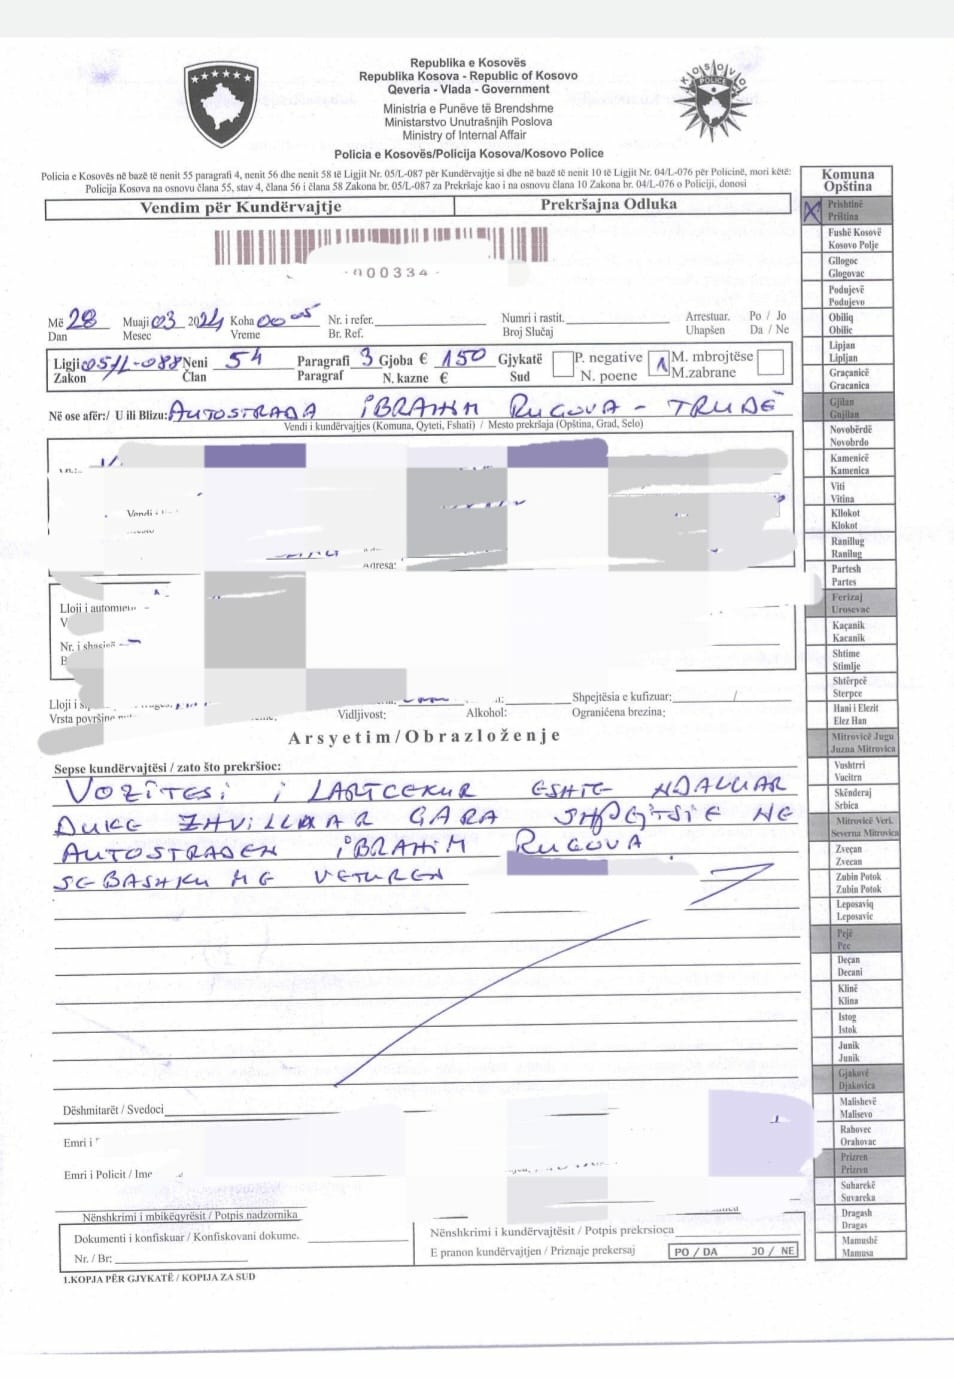 Republika e Kosovës
Republika Kosova - Republic of Kosovo
Qeveria - Vlada - Government
Ministria e Punëve të Brendshme
Ministarstvo Unutrašnjih Poslova
Ministry of Internal Affair
Policia e Kosovës/Policija Kosova/Kosovo Police
KOSOVO
POLICE
Policia e Kosovës në bazë të nenit 55 paragrafi 4, nenit 56 dhe nenit 58 të Ligjit Nr. 05/L-087 për Kundërvajtje si dhe në bazë të nenit 10 të Ligjit Nr. 04/L-076 për Policinë, mori këtë:
Policija Kosova na osnovu člana 55, stav 4, člana 56 i člana 58 Zakona br. 05/L-087 za Prekršaje kao i na osnovu člana 10 Zakona br. 04/L-076 o Policiji, donosi
Vendim për Kundërvajtje Prekršajna Odluka
000334
Më 28 Muaji 03 2024 Koha 00 05 Nr. i refer. Numri i rastit. Arrestuar. Po / Jo
Dan Mesec Vreme Br. Ref. Broj Slučaj Uhapšen Da / Ne
Ligji 05/L-088 Neni 54 Paragrafi 3 Gjoba € 150 Gjykatë P. negative 1 M. mbrojtëse
Zakon Član Paragraf N. kazne € Sud N. poene M.zabrane
Në ose afër:/ U ili Blizu: AUTOSTRADA IBRAHIM RUGOVA - TRUDË
Vendi i kundërvajtjes (Komuna, Qyteti, Fshati) / Mesto prekršaja (Opština, Grad, Selo)
Vendi
Lloji i
V
Nr. i
B
Lloji i Shpejtësia e kufizuar: /
Vrsta površine Vidljivost: Alkohol: Ograničena brezina:
Arsyetim/Obrazloženje
Sepse kundërvajtësi / zato što prekršioc:
VOZITESI I LARTCEKUR ESHTE NDALUAR
DUKE ZHVILLUAR GARA SHPEJTSIE NE
AUTOSTRADEN IBRAHIM RUGOVA
SE BASHKU ME VETUREN
Dëshmitarët / Svedoci
Emri i
Emri i Policit / Ime
Nënshkrimi i mbikëqyrësit / Potpis nadzornika
Dokumenti i konfiskuar / Konfiskovani dokume.
Nr. / Br:
Nënshkrimi i kundërvajtësit / Potpis prekrsioça
E pranon kundërvajtjen / Priznaje prekersaj PO / DA JO / NE
1.KOPJA PËR GJYKATË / KOPIJA ZA SUD
Komuna
Opština
X Prishtinë
Priština
Fushë Kosovë
Kosovo Polje
Gllogoc
Glogovac
Podujevë
Podujevo
Obiliq
Obilic
Lipjan
Lipljan
Graçanicë
Gracanica
Gjilan
Gnjilan
Novobërdë
Novobrdo
Kamenicë
Kamenica
Viti
Vitina
Kllokot
Klokot
Ranillug
Ranilug
Partesh
Partes
Ferizaj
Urosevac
Kaçanik
Kacanik
Shtime
Stimlje
Shtërpcë
Sterpce
Hani i Elezit
Elez Han
Mitrovicë Jugu
Juzna Mitrovica
Vushtrri
Vucitrn
Skënderaj
Srbica
Mitrovicë Veri.
Severna Mitrovica
Zveçan
Zvecan
Zubin Potok
Zubin Potok
Leposaviq
Leposavic
Pejë
Pec
Deçan
Decani
Klinë
Klina
Istog
Istok
Junik
Junik
Gjakovë
Djakovica
Malishevë
Malisevo
Rahovec
Orahovac
Prizren
Prizren
Suharekë
Suvareka
Dragash
Dragas
Mamushë
Mamusa